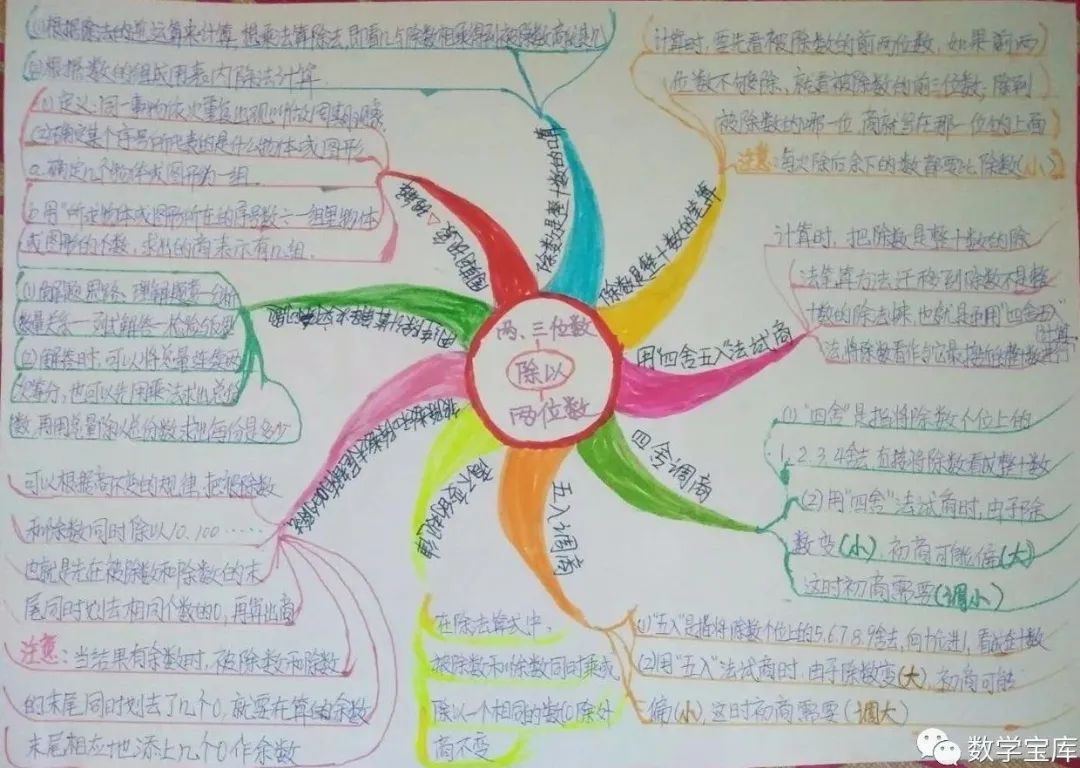 两、三位数
除以
两位数
除数是整十数的口算
①根据除法的逆运算来计算,想乘法算除法,即看几与除数相乘得到被除数,商就是几
②根据数的组成用表内除法计算.
除数是整十数的笔算
计算时,要先看被除数的前两位数,如果前两
位数不够除,就看被除数的前三位数;除到
被除数的哪一位,商就写在那一位的上面
注意:每次除后余下的数都要比除数(小)
用“四舍五入”法试商
计算时,把除数是整十数的除
法笔算方法迁移到除数不是整
十数的除法中来,也就是要用“四舍五入”
法将除数看作与它最接近的整十数进行
计算.
四舍调商
(1)“四舍”是指将除数个位上的
1、2、3、4舍去,直接将除数看成整十数
(2)用“四舍”法试商时,由于除
数变(小),初商可能偏(大)
这时初商需要(调小)
五入调商
(1)“五入”是指将除数个位上的5、6、7、8、9舍去,向十位进1,看成整十数
(2)用“五入”法试商时,由于除数变(大),初商可能
偏(小),这时初商需要(调大)
商不变的规律
在除法算式中,
被除数和除数同时乘或
除以一个相同的数(0除外)
商不变
被除数和除数末尾都有0的除法
可以根据商不变的规律,把被除数
和除数同时除以10、100……
也就是先在被除数和除数的末
尾同时划去相同个数的0,再算出商
注意:当结果有余数时,被除数和除数
的末尾同时划去了几个0,就要在算的余数
末尾相应地添上几个0作余数
用连除计算解决实际问题
(1)解题思路:理解题意—分析
数量关系—列式解答—检验反思
(2)解答时,可以将总量连续两
次等分,也可以先用乘法求出总份
数,再用总量除以总份数,求出每份是多少
周期现象
(1)定义:同一事物依次重复出现叫作周期现象
(2)确定某个序号所代表的是什么物体或图形
a.确定几个物体或图形为一组.
b.用“所求物体或图形所在的序号数÷一组里物体
或图形的个数,求出的商表示有几组.
数学宝库